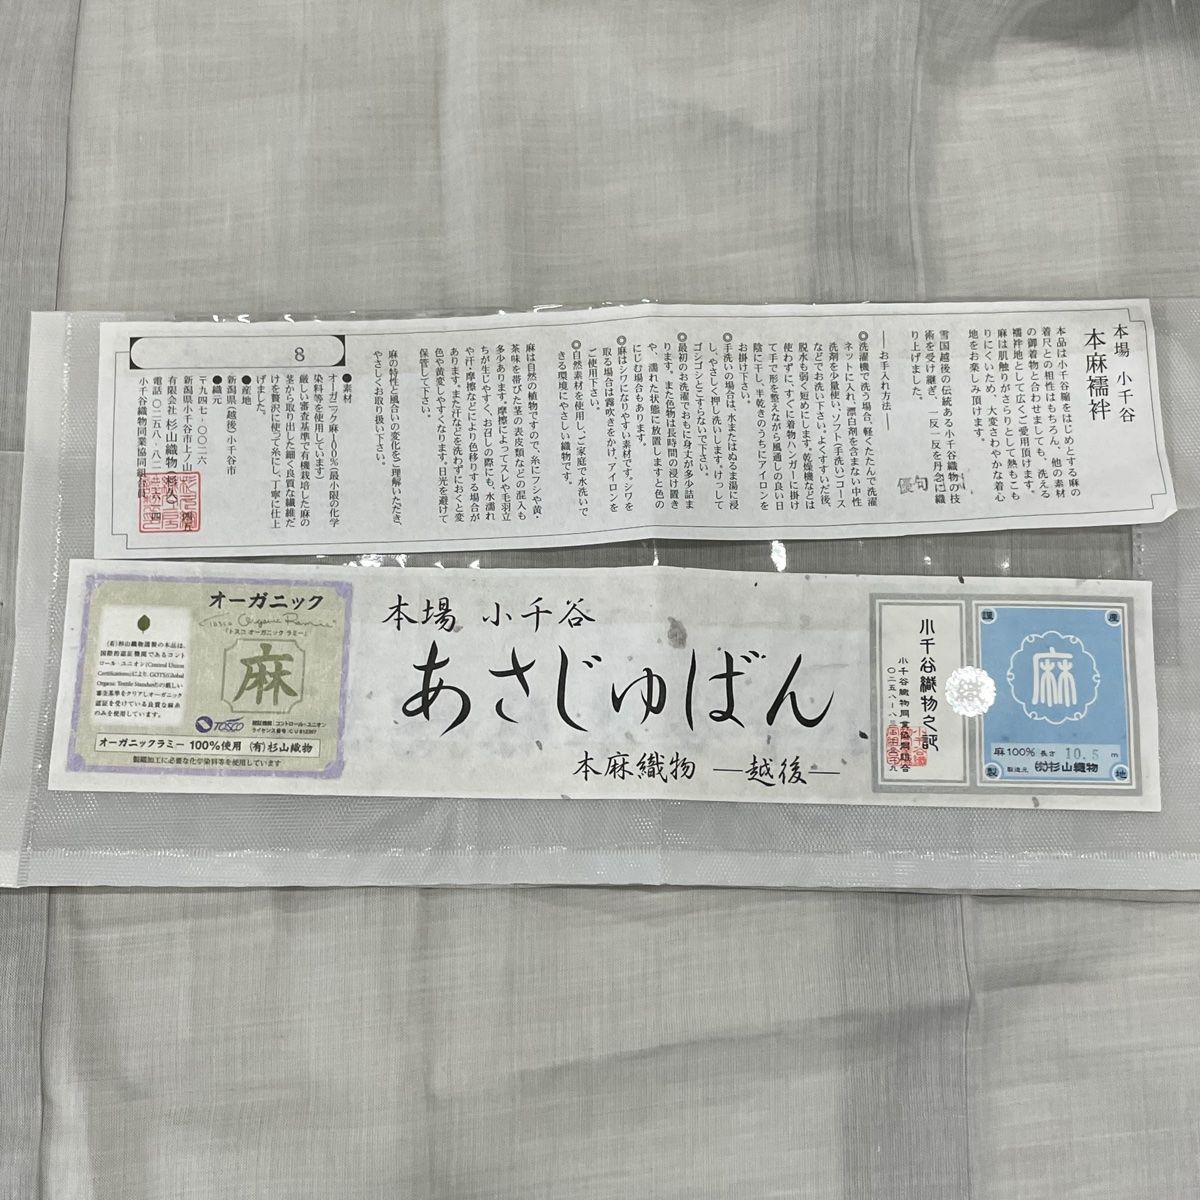 本場 小千谷
本麻襦袢
本品は小千谷縮をはじめとする麻の
着尺との相性はもちろん、他の素材
の御着物と合わせましても、洗える
襦袢地として広くご愛用頂けます。
麻は肌触りがさらりとして熱もこも
りにくいため、大変さわやかな着心
地をお楽しみ頂けます。
雪国越後の伝統ある小千谷織物の技
術を受け継ぎ、一反一反を丹念に織
り上げました。
優句
――お手入れ方法――
◎洗濯機で洗う場合、軽くたたんで洗濯
ネットに入れ、漂白剤を含まない中性
洗剤を少量使い、ソフト(手洗い)コース
などでお洗い下さい。よくすすいだ後、
脱水も弱く短めにします。乾燥機などは
使わずに、すぐに着物ハンガーに掛け
て手で形を整えながら風通しの良い日
陰に干し、半乾きのうちにアイロンを
お掛け下さい。
◎手洗いの場合は、水またはぬるま湯に浸
し、やさしく押し洗いします。けっして
ゴシゴシとこすらないで下さい。
◎最初のお洗濯でおもに身丈が多少詰ま
ります。また色物は長時間の浸け置き
や、濡れた状態に放置しますと色の
にじむ場合もあります。
◎麻はシワになりやすい素材です。シワを
取る場合は霧吹きをかけ、アイロンを
ご使用下さい。
◎自然素材を使用し、ご家庭で水洗いで
きる環境にやさしい織物です。
麻は自然の植物ですので、糸にフシや黄・
茶味を帯びた茎の表皮類などの混入も
多少あります。摩擦によってスレや毛羽立
ちが生じやすく、お召しの際にも、水濡れ
や汗・摩擦などにより色移りする場合が
あります。また汗などを洗わずにおくと変
色や黄変しやすくなります。日光を避けて
保管して下さい。
麻の特性と風合いの変化をご理解いただき、
やさしくお取り扱い下さい。
●素材
オーガニック麻100%(最小限の化学
染料等を使用しています)
厳しい審査基準で有機栽培した麻の
茎から取り出した細く良質な繊維だ
けを贅沢に使って糸にし、丁寧に仕上
げました。
●産地
新潟県(越後)小千谷市
●織元
〒九四七-〇〇二六
新潟県小千谷市上ノ山
有限会社 杉山織物
電話〇二五八-八二
小千谷織物同業協同組合員
8
オーガニック
Tosco Organic Ramie
「トスコ オーガニック ラミー」
(有)杉山織物謹製の本品は、
国際的認証機関であるコント
ロール・ユニオン(Control Union
Certifications)により、GOTS(Global
Organic Textile Standard)の厳しい
審査基準をクリアしオーガニック
認証を受けている良質な麻糸
のみを使用しています。
麻
TOSCO
認証機関 コントロール・ユニオン
ライセンス番号 CU812367
オーガニックラミー 100%使用 (有)杉山織物
製織加工に必要な化学染料等を使用しています
本場 小千谷
あさじゅばん
本麻織物 ―越後―
小千谷織物之証
小千谷織物同業協同組合
謹産
麻
麻100% 長さ 10.5 m
製造元 (有)杉山織物
製地